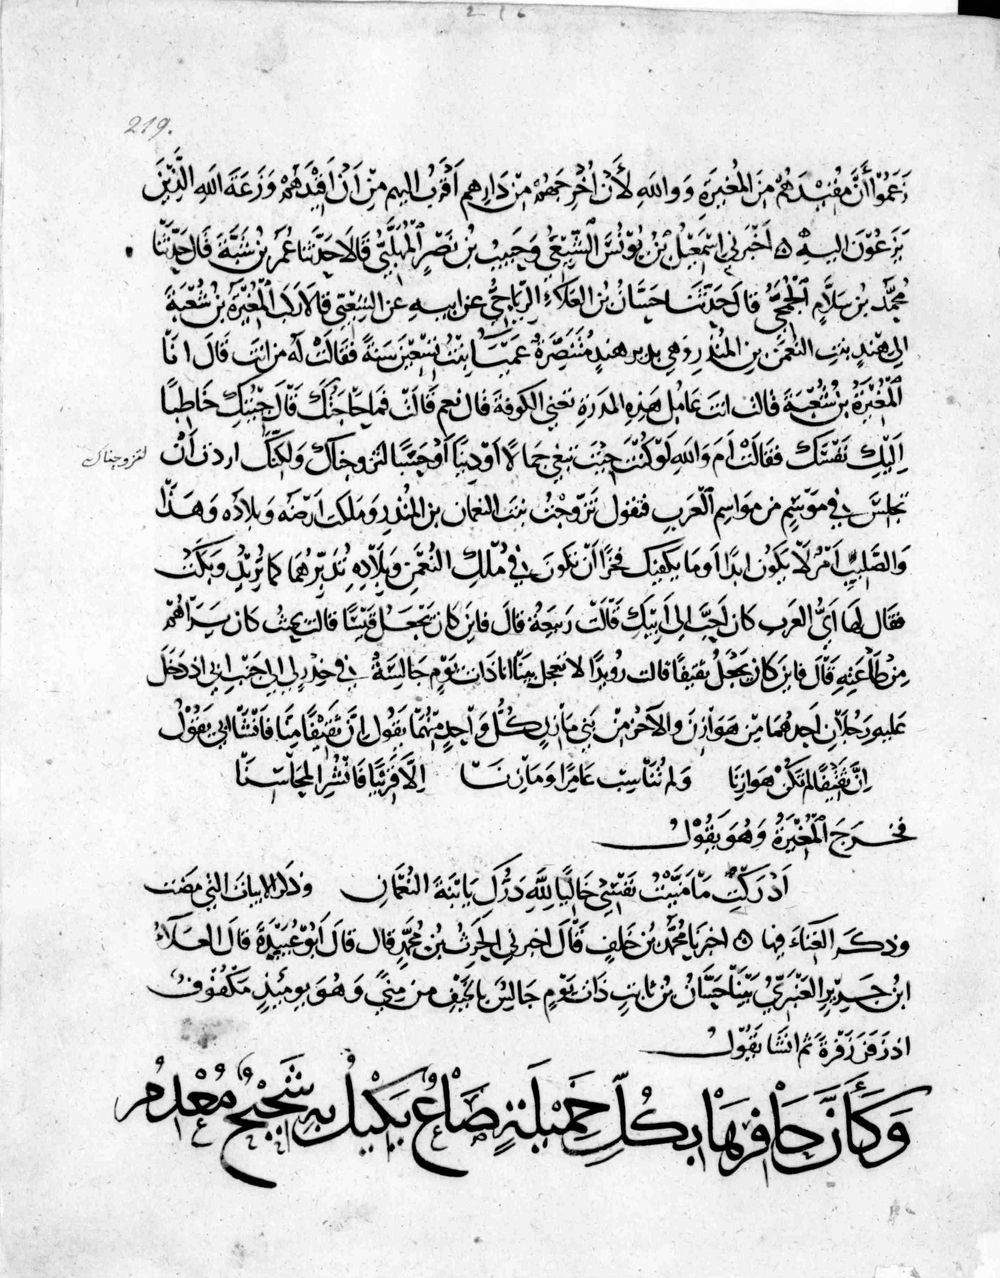 216
219.
زَعَمُوْا أَنَّ مُقِيْدَهُمْ مِنَ المُغِيرَةِ وَوَاللهِ لَأَنْ أُخْرِجَهُمْ مِنْ دَارِهِم أَقْرَبُ اليهم مِنْ أَنْ أُقِيْدَهُمْ وَزَعَةَ اللهِ الَّذِيْنَ
يَزِعُوْنَ اليهِ ۞ أَخْبَرَنِي اسْمٰعِيْلُ بْنُ يُوْنُسَ الشِّيْعِيُّ وَحَبِيْبُ بْنُ نَصْرٍ المُهَلَّبِيُّ قَالَا حَدَّثَنَا عُمَرُ بْنُ شَبَّةَ قَالَ حَدَّثَنَا
مُحَمَّدُ بن سَلَّامٍ الجُمَحِيُّ قالَ حَدَّثَنَا حَسَّانُ بْنُ العَلَاءِ الرِّيَاحِيُّ عن ابيهِ عن الشَّعْبِيِّ قالَ رَكِبَ المُغِيْرَةُ بنُ شُعْبَةَ
الى هِنْدٍ بِنْتِ النُّعْمٰنِ بنِ المُنْذِرِ وَهِيَ بِدَيْرِ هِنْدٍ مُتَنَصِّرَةٌ عَمْيَاءُ بِنْتُ تِسْعِيْنَ سَنَةً فَقَالَتْ لَهُ من انتَ قَالَ انَا
المُغِيْرَةُ بْنُ شُعْبَةَ قالت انتَ عَامِلُ هَذِهِ المَدَرَةِ تعني الكوفةَ قالَ نعم قَالَتْ فَمَا حَاجَتُكَ قَالَ جِئْتُكِ خَاطِبًا
اِلَيْكِ نَفْسَكِ فقَالَتْ أَمَ وَاللهِ لَوْ كُنْتَ جِئْتَ تبغي جَمَالًا أَوْ دِيْنًا أَوْ حَسَبًا لَزوجناكَ وَلَكِنَّكَ اردتَ أَنْ
لتزوجناك
تجلسَ في مَوْسِمٍ من مَوَاسِمِ العَرَبِ فتقول تَزَوَّجْتُ بنتَ النعمان بن المُنذرِ وَمَلكت ارْضَهُ وَبلادَهُ وَهَذَا
وَالصَّلِيْبِ اَمْرٌ لَا يَكُونُ ابدًا اَوَمَا يَكفيكَ فَخْرًا أَنْ تَكُونَ فِي مُلْكِ النُّعْمٰنِ وَبِلَادِهِ تُدَبِّرُهُمَا كَمَا تُرِيْدُ وَبَكَتْ
فقَالَ لَهَا أَيُّ العَرَبِ كانَ أَحَبَّ الى أَبِيْكِ قَالَتْ رَبيعَةُ قالَ فاين كانَ يَجْعَلُ قَيْسًا قالت كان
مِنْ طَاعَتِهِ قَالَ فاين كانَ يَجْعَلُ ثَقيفًا قالت رُوَيدًا لَا تعجل بينا انا ذاتَ يَوْمٍ جَالِسَةٌ في خِدْرٍ لي الى جَنْبِ ابي اذ دَخَلَ
عليهِ رَجُلَانِ أَحَدُهُمَا مِنْ هَوَازِنَ والآخَرُ مِنْ بَنِي مَازِنٍ كُلُّ وَاحِدٍ مِنْهُمَا يَقُولُ إِنَّ ثَقِيْفًا مِنَّا فَأَنْشَا ابي يَقُوْلُ
اِنَّ ثَقِيْفًا لم تَكُنْ هَوَازِنَا وَلم تُنَاسِبْ عَامِرًا وَمَازِنَا اِلَّا قَرِيْبًا فَانْشُرِ المَحَاسِنَا
فَخَرَجَ المُغِيْرَةُ وَهُوَ يَقُوْلُ
أَدْرَكْتِ مَا مَنَّيْتُ نَفْسِي خَالِيًا لِلّٰهِ دَرُّكِ يَا ابْنَةَ النُّعْمَانِ وذكر الابياتَ التي مضت
وذكَرَ الغِنَاءَ فيها ۞ اخبرنا مُحَمَّدُ بن خَلَفٍ قَالَ اخبرني الحَرِثُ بْنُ مُحَمَّدٍ قال قالَ أَبُوْ عُبَيْدَةَ قالَ العَلَاءُ
ابن جَرِيرٍ العَنْبَرِيُّ بَيْنَا حَسَّانُ بْنُ ثابتٍ ذاتَ يَوْمٍ جَالِسٌ بالخَيْفِ من مِنًى وَهُوَ يومئذٍ مَكْفُوْفٌ
اذ زَفَرَ زَفْرَةً ثم انشَا يَقُوْلُ
وَكَأَنَّ حَافِرَهَا بِكُلِّ خَمِيْلَةٍ صَاعٌ يَكِيْلُ بِهِ شَحِيْحٌ مُعْدِمُ